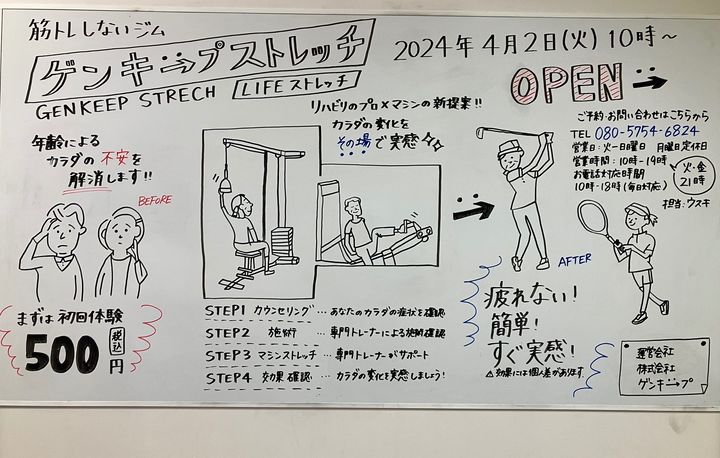 筋トレしないジム
ゲンキープストレッチ
GENKEEP STRECH
LIFEストレッチ
2024年4月2日(火)10時〜
OPEN
ご予約・お問い合わせはこちらから
TEL 080-5754-6824
営業日:火ー日曜日 月曜日定休日
営業時間:10時-19時
火・金
21時
お電話対応時間
10時-18時(毎日対応)
担当:ウスキ
年齢による
カラダの不安を
解消します!!
BEFORE
リハビリのプロ×マシンの新提案!!
カラダの変化を
その場で実感
AFTER
まずは初回体験
500円
税込
STEP1 カウンセリング…あなたのカラダの症状を確認
STEP2 施術…専門トレーナーによる施術確認
STEP3 マシンストレッチ…専門トレーナーがサポート
STEP4 効果確認…カラダの変化を実感しましょう!
疲れない!
簡単!
すぐ実感!
△効果には個人差があります
運営会社
株式会社
ゲンキープ